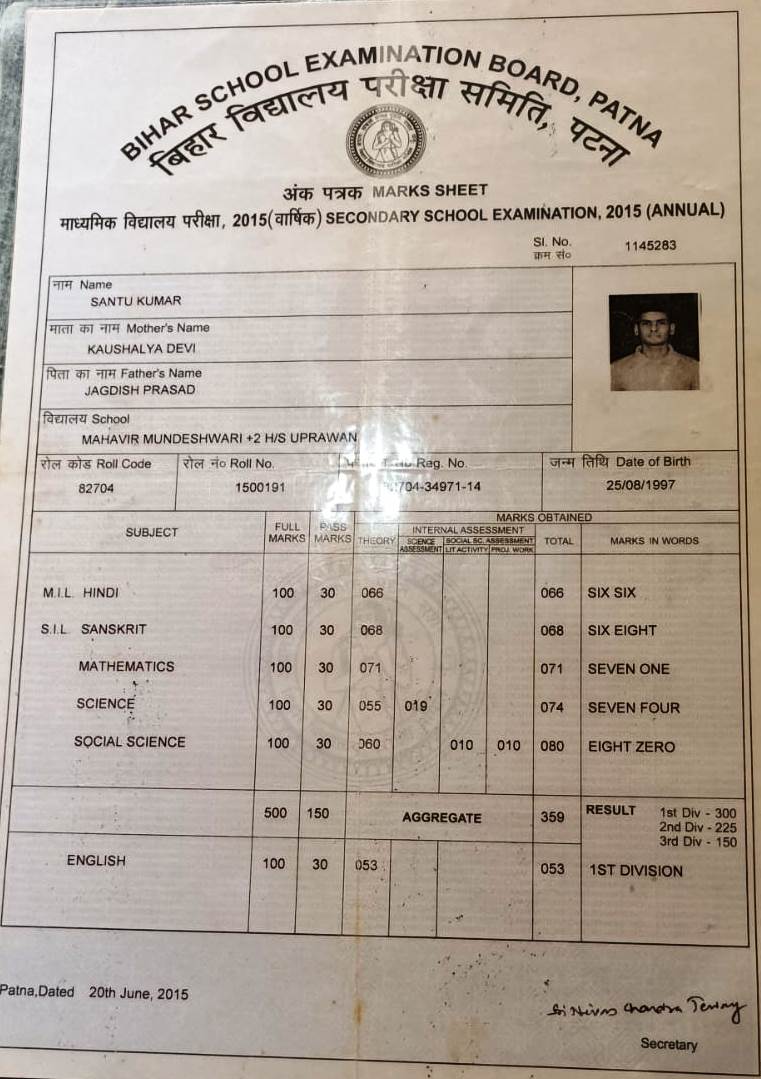 BIHAR SCHOOL EXAMINATION BOARD, PATNA
बिहार विद्यालय परीक्षा समिति, पटना
अंक पत्रक MARKS SHEET
माध्यमिक विद्यालय परीक्षा, 2015(वार्षिक) SECONDARY SCHOOL EXAMINATION, 2015 (ANNUAL)
Sl. No. 1145283
क्रम सं०
नाम Name
SANTU KUMAR
माता का नाम Mother's Name
KAUSHALYA DEVI
पिता का नाम Father's Name
JAGDISH PRASAD
विद्यालय School
MAHAVIR MUNDESHWARI +2 H/S UPRAWAN
रोल कोड Roll Code रोल नं० Roll No. Reg. No. जन्म तिथि Date of Birth
82704 1500191 704-34971-14 25/08/1997
SUBJECT FULL MARKS PASS MARKS MARKS OBTAINED
THEORY INTERNAL ASSESSMENT TOTAL MARKS IN WORDS
SCIENCE ASSESSMENT SOCIAL SC. ASSESSMENT
LIT ACTIVITY PROJ. WORK
M.I.L. HINDI 100 30 066 066 SIX SIX
S.I.L. SANSKRIT 100 30 068 068 SIX EIGHT
MATHEMATICS 100 30 071 071 SEVEN ONE
SCIENCE 100 30 055 019 074 SEVEN FOUR
SOCIAL SCIENCE 100 30 060 010 010 080 EIGHT ZERO
500 150 AGGREGATE 359 RESULT 1st Div - 300
2nd Div - 225
3rd Div - 150
ENGLISH 100 30 053 053 1ST DIVISION
Patna,Dated 20th June, 2015
Secretary